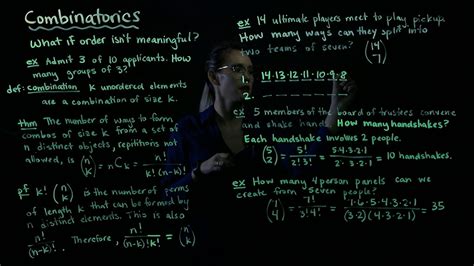 Combinatorics
What if order isn't meaningful?
ex Admit 3 of 10 applicants. How
many groups of 3?
def: combination K unordered elements
are a combination of size k.
thm The number of ways to form
combos of size k from a set of
n distinct objects, repititions not
allowed, is (n k) = nCk = n!/(k!(n-k)!)
pf k! (n k) is the number of perms
of length k that can be formed by
n distinct elements. This is also
n!/(n-k)!. Therefore, n!/((n-k)!k!) = (n k)
ex 14 ultimate players meet to play pickup.
How many ways can they split into
two teams of seven? (14 7)
1. 14·13·12·11·10·9·8
2.
ex 5 members of the board of trustees convene
and shake hands. How many handshakes?
Each handshake involves 2 people.
(5 2) = 5!/(2!3!) = 5·4·3·2·1/(2·3·2·1) = 10 handshakes.
ex How many 4 person panels can we
create from seven people?
= 7!/(3!4!) = 7·6·5·4·3·2·1/((3·2)(4·3·2·1)) = 35